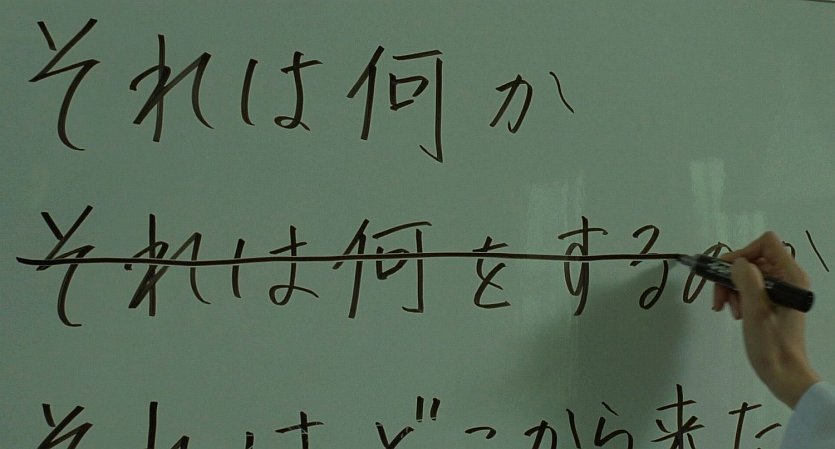 それは何か
それは何をするのか
それはどっから来た